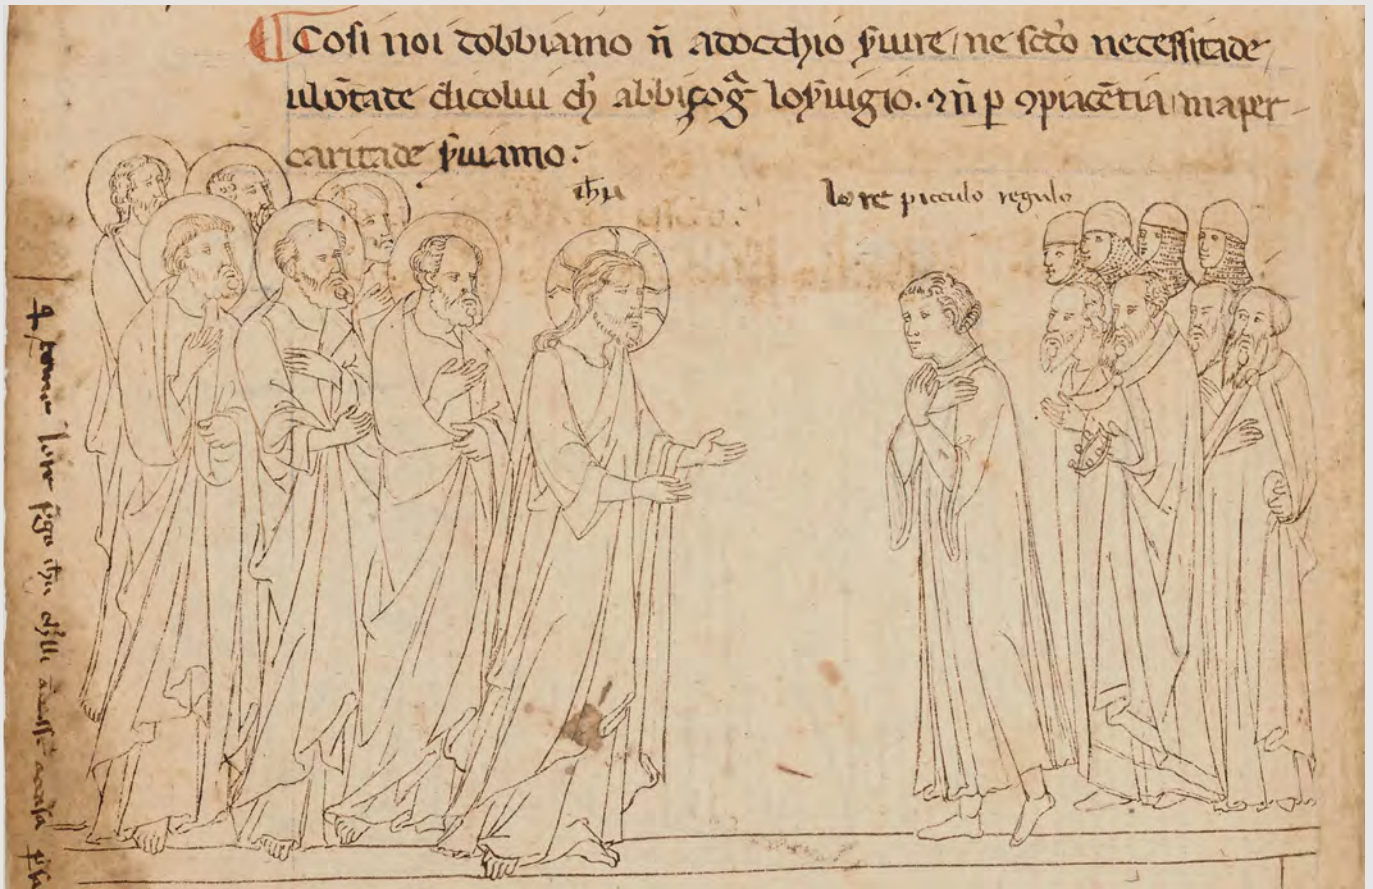 Cosi noi dobbiamo ñ adocchio s̃uire / ne scd̃o necessitade /
uolõtade dicolui ch̃ abbisog̃ los̃uigio. ꝯñ p̲ ꝯpiacẽtia / maper-
caritade s̃uiamo :
ih̃u
lo re picculo regulo
come lo re p̃ga ih̃u